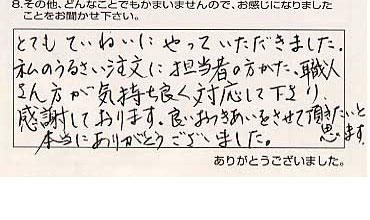 8.その他、どんなことでもかまいませんので、お感じになりました
ことをお聞かせ下さい。
とてもていねいにやっていただきました。
私のうるさい注文に担当者の方かた、職人
さん方が気持ち良く対応して下さり
感謝しております。良いおつきあいをさせて頂きたいと
思います。
本当にありがとうございました。
ありがとうございました。